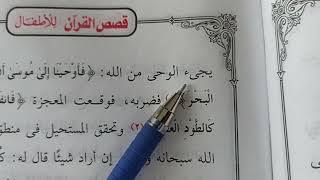 قصص القرآن للأطفال
يجىء الوحى من الله: ﴿فَأَوْحَيْنَا إِلَىٰ مُوسَىٰ
الْبَحْرَ﴾ فضربه، فوقعت المعجزة
كَالطَّوْدِ وتحقق المستحيل فى
الله سبحانه إن أراد شيئًا قال له: